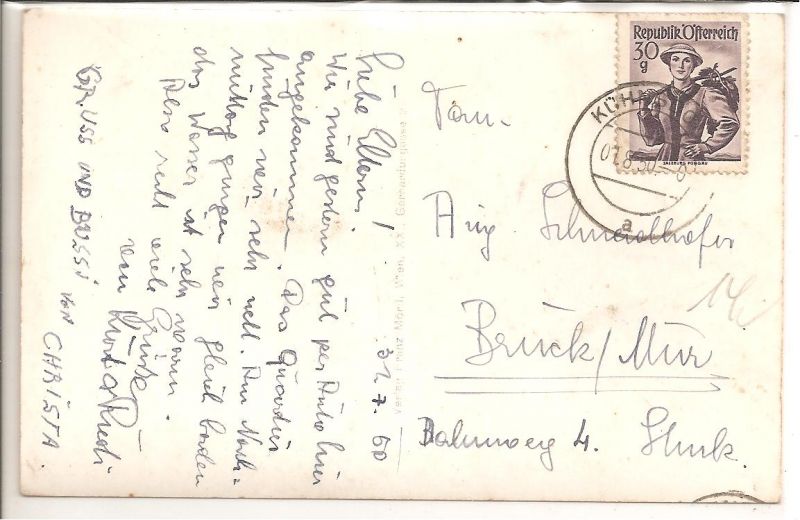 31.7.50
Liebe Eltern!
Wir sind gestern gut per Auto hier
angekommen. Das Quartier
finden wir sehr nett. Am Nach-
mittag gingen wir gleich baden
das Wasser ist sehr warm.
Also recht viele Grüße
von Kurt & Rudi
GRUSS UND BUSSI von
CHRISTA.
Verlag Franz Mörtl, Wien, XX.,
Republik Österreich
30
g
SALZBURG PONGAU
01.8.50
a
Fam.
Aug. Schmiedhofer
14
Bruck/Mur
Bahnweg 4. Stmk.